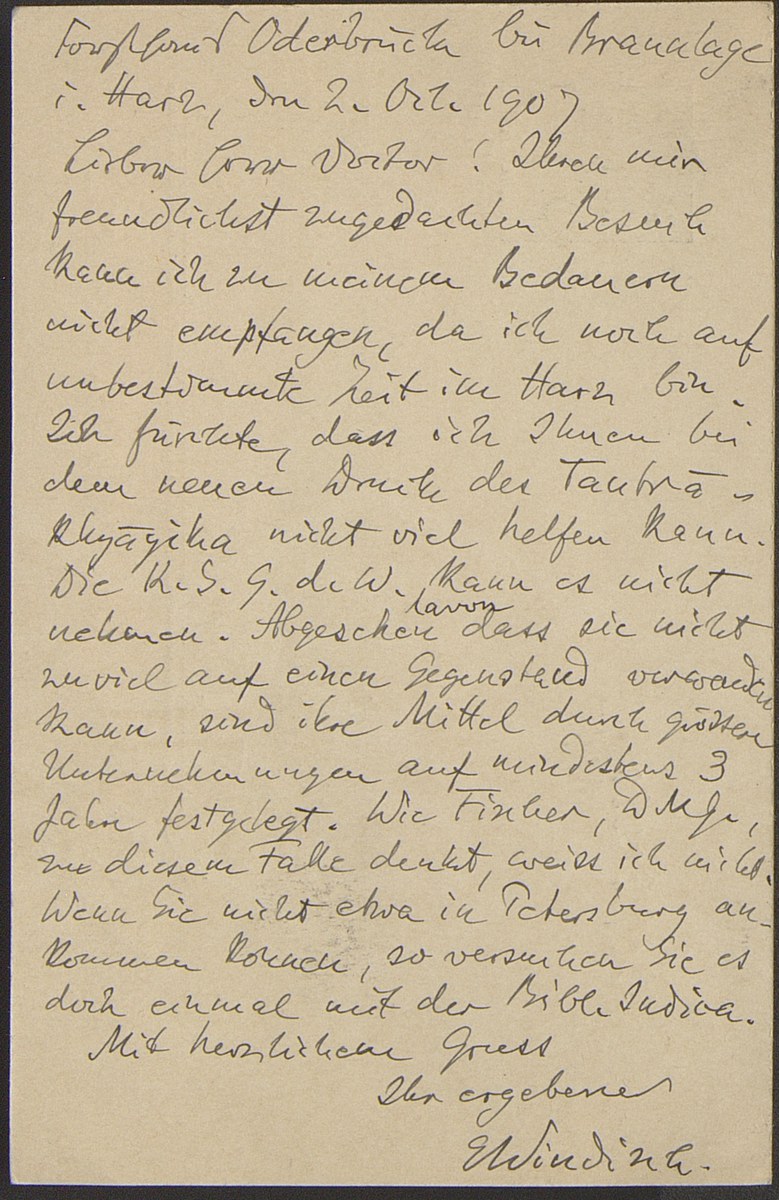 Forsthaus Oderbrück bei Braunlage
i. Harz, den 2. Oct. 1907
Lieber Herr Doctor! Ihren mir
freundlichst zugedachten Besuch
kann ich zu meinem Bedauern
nicht empfangen, da ich noch auf
unbestimmte Zeit im Harz bin.
Ich fürchte, dass ich Ihnen bei
dem neuen Druck des Tantrā-
khyāyika nicht viel helfen kann.
Die K. S. G. d. W. kann es nicht
nehmen. Abgesehen davon dass sie nicht
zu viel auf einen Gegenstand verwenden
kann, sind ihre Mittel durch grössere
Unternehmungen auf mindestens 3
Jahre festgelegt. Wie Fischer, DMG.,
zu diesem Falle denkt, weiss ich nicht.
Wenn Sie nicht etwa in Petersburg an-
kommen können, so versuchen Sie es
doch einmal mit der Bibl. Indica.
Mit herzlichem Gruss
Ihr ergebener
EWindisch.